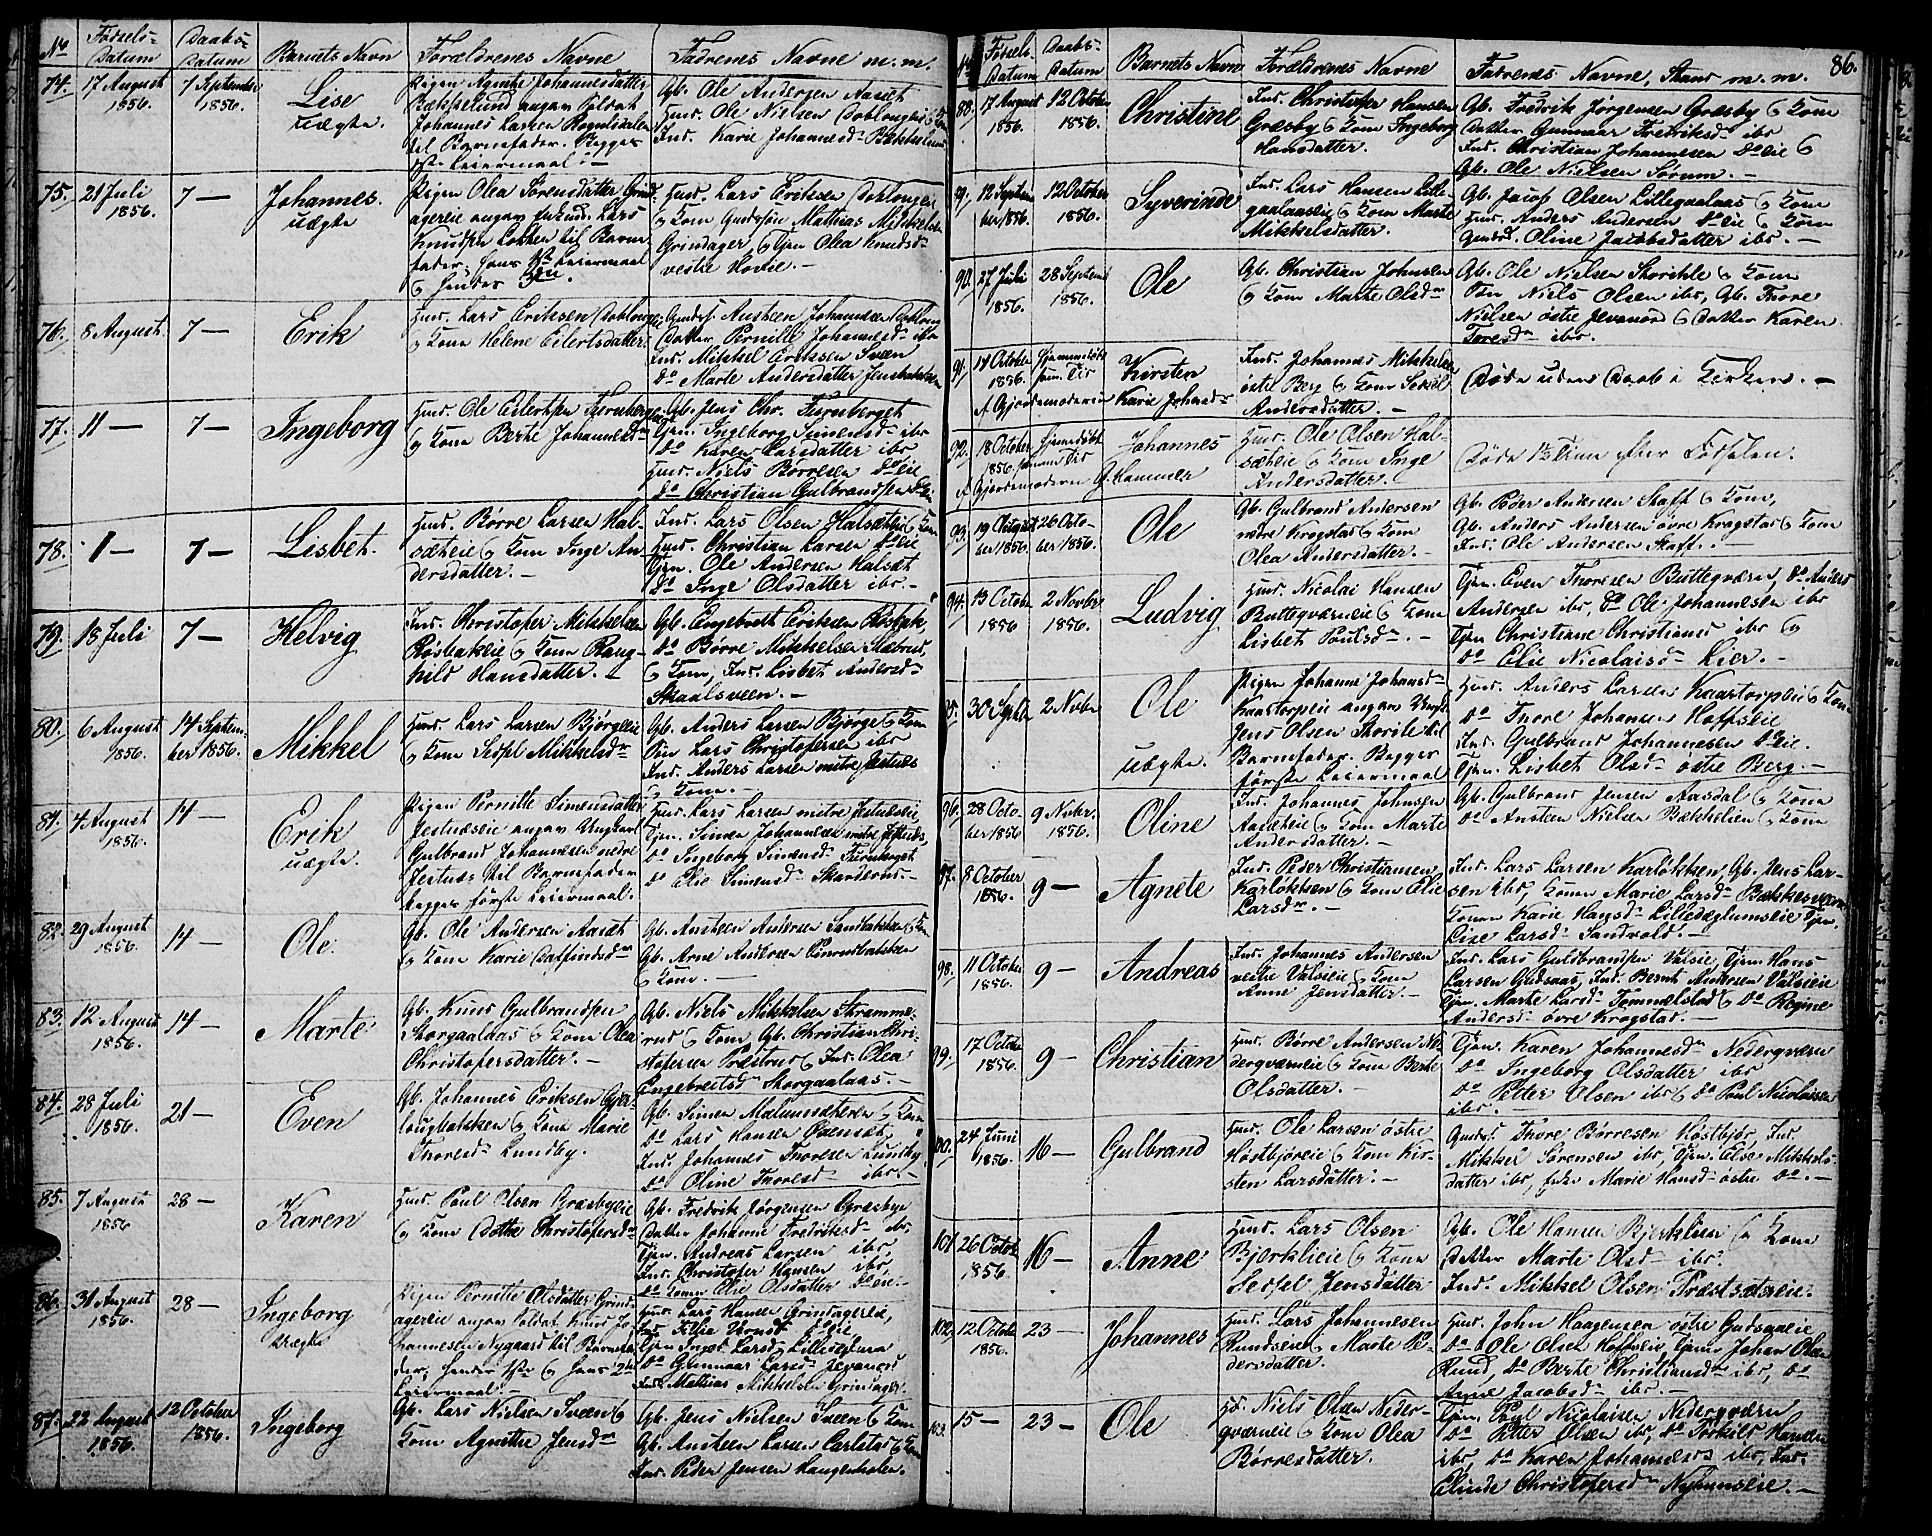 No Fødsels-Datum Daabs-Datum Barnets Navn Forældrenes Navne Faddrenes Navne m. m.
74. 17 August 1856. 7 September 1856. Lise uægte.
Pigen Agnethe Johannesdatter
Bækkelund angav Soldat
Johannes Larsen
til Barnefader. Begges
1ste Leiermaal. —
Gb. Ole Andersen Aaset
Huus. Ole Nielsen Dobloug
Ind. Karie Johannesd. Bækkelund
75. 21 Juli 1856. 7 — Johannes. uægte
Pigen Olea Sørensdatter Grind-
agereie angav
Lars
Knudsen Løkken til Barne-
fader, hans 1ste Leiermaal
& hendes 3die.
Huus. Lars Eriksen Doblougeie
& Kone Gudsf. Mathias Mikkelsen
Grindager, & Tjen. Olea Knudsd.
vestre Hovie. —
76. 8 August. 7 — Erik
Huus. Lars Eriksen Doblougeie
& Kone Helene Eilertsdatter
Gudsf. Austeen Johannesen Doblou
Datter Pernille Johannesd. ibr
Ind. Mikkel Eriksen Sveen
do Marte Andersdatter
77. 11 — 7 — Ingeborg
Huus. Ole Eilertsen Furuberget
& Kone Berte Johannesd.
Gb. Jens Chr. Furuberget
Tjen. Ingeborg Simensd. ibr
do Karen Larsdatter ibr
Huus. Niels Børresen do eie
do Christian Gulbrandsen do eie
78. 1 — 7 — Lisbet.
Huus. Børre Larsen Hal-
sæteie & Kone Inge An-
dersdatter. —
Ind. Lars Olsen Halsæteie & Kone
Huus. Christian Larsen do eie
Tjen. Ole Andersen Halsæt
do Inge Olsdatter ibr. —
79. 18 Juli 7 — Helvig
Ind. Christofer Mikkelsen
Røsbakeie & Kone Rang-
hild Hansdatter. —
Gb. Engebreth Eriksen Røsbak,
do Børre Mikkelsen
& Kone, Ind. Lisbet Andersd.
Skaalsveen. —
80. 6 August 1856. 14 September 1856. Mikkel
Huus. Lars Larsen Bjørgeeie
& Kone Sidsel Mikkelsd.
Gb. Anders Larsen Bjørge & Kone
Søn Lars Christofersen ibr
Ind. Anders Larsen mitre Jestnes
& Kone. —
81. 4 August 1856. 14 — Erik uægte.
Pigen Pernille Simensdatter
Jestneseie angav Ungkarl
Gulbrand Johannesen nedre
Jestnes til Barnefader
begges første Leiermaal.
Huus. Lars Larsen mitre Jestneseie
Tjen. Simen Johannesen mitre Jestnes,
do Ingeborg Simensd. Furuberget
do Elie Simensd.
82. 29 August 1856. 14 — Ole.
Gb. Ole Andersen Aaset
& Kone Karie Dalfindsd.
Gb. Austeen Andersen Sandbakken & Kone
Gb. Arne Andersen
& Kone.
83. 12 August 1856. 14 — Marte
Gb. Knud Gulbrandsen
Storgaalaas & Kone Olea
Christofersdatter. —
Gb. Niels Mikkelsen Stramme-
rud & Kone Gb. Christian Chri-
stofersen Præstrud & Ind. Olea
Engebretsd. Storgaalaas. —
84. 28 Juli 1856. 21 — Even
Gb. Johannes Eriksen Gjer-
lougbakken & Kone Marie
Thoresd. Lundby.
Gb. Simen Mælumsæteren & Kone
do Lars Hansen
Ind. Johannes Thoresen Lundby.
do Oline Thoresd. ibr. —
85. 7 August 1856 28 — Karen
Huus. Poul Olsen Græsbyeie
& Kone Dothe Christofersd.
Gb. Fredrik Jørgensen Græsbye
Datter Johanne Fredriksd. ibr,
Tjen. Andreas Larsen ibr,
Ind. Christofer Hansen ibr,
do Kone Elie Olsdatter do eie. —
86. 31 August 1856. 28 — Ingeborg uægte
Pigen Pernille Olsdatter Grind-
agereie angav Soldat Knud Jo-
hannesen Nygaard til Barnefa-
der, hendes 1ste & hans 2det
Leiermaal. —
Huus. Lars Hansen Grindagereie,
Ind.
Tjen Inger Larsd. Lilledeglum
do Gunnar Larsd.
Ind. Mathias Mikkelsen Grindager.
87. 22 August 1856. 12 October 1856. Ingeborg
Gb. Lars Nielsen Sveen &
Kone Agnethe Jensd.
Gb. Jens Nielsen Sveen & Kone
Gb. Austeen Larsen Carlstad & Kone
Ind. Peder Jensen Haugenholen.
86.
No Fødsels-Datum Daabs-Datum Barnets Navn Forældrenes Navne Fadrenes Navne, Stand m. m.
88. 17 August 1856. 12 October 1856. Christine
Ind. Christofer Hansen
Græsby & Kone Ingeborg
Hansdatter.
Gb. Fredrik Jørgensen Græsby & Kone
Datter Gunnar Fredriksd. ibr
Ind. Christian Johannesen do eie &
Gb. Ole Nielsen Sorum. —
89. 12 September 1856. 12 October 1856. Syverinde
Ind. Lars Hansen Lille-
gaalaaseie & Kone Marte
Mikkelsdatter.
Gb. Jacob Olsen Lillegaalaas & Kone
Huus. Anders Andersen do eie & Kone
Gudsf. Oline Jacobsdatter ibr. —
90. 27 Juli 1856. 28 September 1856. Ole
Gb. Christian Johnsen
& Kone Marte Olsd.
Gb. Ole Nielsen Skorihle & Kone
Søn Niels Olsen ibr, Gb. Thore
Nielsen østre Jevanord & Datter Karen
Toresd. ibr.
91. 14 October 1856. Hjemmedøbt samme Dir
af Gjordemoderen Kirsten Karie Johansd.
Ind. Johannes Mikkelsen
østre Berg & Kone Sidsel
Andersdatter. —
Døde uden Daab i Kirken. —
92. 18 October 1856. Hjemmedøbt samme Dir
af Gjordemodern G. Hammer Johannes
Huus. Ole Olsen Hal-
sæteie & Kone Inge
Andersdatter. —
Døde 1½ Time efter Fødselen.
93. 19 October 1856. 26 October 1856. Ole
Gb. Gulbrand Andersen
nedre Kragstad & Kone
Olea Andersdatter. —
Gb. Peder Andersen Skaff & Kone,
Gb. Anders Andersen øvre Kragstad & Kone
Ind. Ole Andersen Skaff. —
94. 13 October 1856 2 November 1856. Ludvig
Huus. Nicolai Hansen
Buttegværneie & Kone
Lisbet Poulsd. —
Tjen. Even Thoresen Buttegværn, do Anders
Andersen ibr, do Ole Johannesen ibr
Tjen Christiane Christiansd ibr &
do Elie Nicolaisd. Lier. —
95. 30 September 2 November Ole uægte.
Pigen Johanne Johansd.
Kaastorpeie angav Ungk.
Jens Olsen Skorihle til
Barnefader. Begges
første Leiermaal
Huus. Anders Larsen Kaastorpeie & Kone
do Thore Johansen Hoffseie
Ind. Gulbrand Johannesen do eie.
Tjen. Lisbet Olsd. østre Berg. —
96. 28 October 1856 9 November 1856. Oline
Ind. Johannes Johnsen
Aasæteie & Kone Marte
Andersdatter. —
Gb. Gulbrand Jensen Aasdal & Kone
do Austen Nielsen Bækkelien & Kone
97. 8 October 1856. 9 — Agnete
Ind. Peder Christiansen
Karløkken & Kone Elie
Larsd. —
Ind. Lars Larsen Karløkken, Gb. Jens Lar-
sen ibr, Konen Marie Larsd. Bakkesveen
Konen Karie Hansd. Lilledeglumseie Tjen.
Lise Larsd. Sandvold. —
98. 11 October 1856. 9 — Andreas
Ind. Johannes Andersen
vestre Valseie & Kone
Anne Jensdatter. —
Ind. Lars Gulbrandsen Valseie, Tjen Hans
Larsen Gudsaas, Ind. Bernt Andersen Valseie
Tjen. Marte Larsd. Tommelstad & do Regine
Andersd. øvre Kragstad. —
99. 17 October 1856. 9 — Christian
Huus. Børre Andersen Ne-
dergværneie & Kone Berte
Olsdatter. —
Tjen. Karen Johannesd. Nedergværn
do Ingeborg Olsdatter ibr
do Petter Olsen ibr & do Poul Nicolaisen
ibr. —
100. 24 Juni 1856. 16 — Gulbrand
Huus. Ole Larsen østre
Høstbjøreie & Kone Kir-
sten Larsdatter. —
Gudsf. Thore Børresen Høstbjør, Ind.
Mikkel Sørensen ibr, Tjen. Else Mikkels-
datter ibr, Marie Hansd. østre do. —
101. 26 October 1856. 16 — Anne
Huus. Lars Olsen
Bjerklieie & Kone
Sessel Jensdatter
Gb. Ole Hansen Bjerklien & Kone
Datter Marte Olsd. ibr.
Ind. Mikkel Olsen Præstsæteie.
102. 12 October 1856. 23 — Johannes
Huus. Lars Johannesen
Rundseie & Marte Pe-
dersdatter.
Huus. John Haagensen østre Gudsgaeie
do Ole Olsen Hoffseie, Tjener Johan Olsen
Rund, do Berte Christiansd. ibr, do
Anne Jacobsd. ibr. —
103. 15 — 23 — Ole
Hs. Niels Olsen Neder-
gværneie & Kone Olea
Børresdatter.
Tjen. Poul Nicolaisen Nedergværn
do Petter Olsen ibr, do Torkild Hansen
ibr, do Karen Johannesd ibr, Ind.
Elinde Christofersd. Nyhuuseie. —